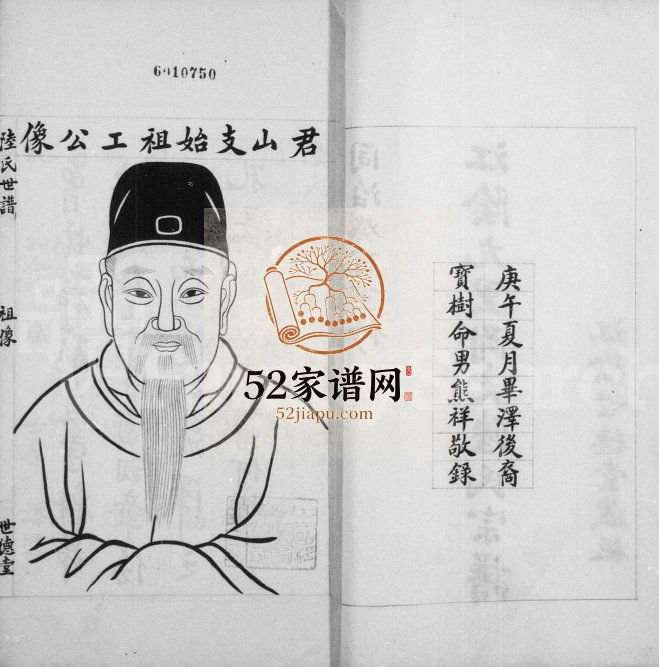 6010750
君山支始祖工公像
陸氏世譜
祖像
世德堂
庚午夏月畢澤後裔
寶樹命男熊祥敬録
52家谱网
52jiapu.com